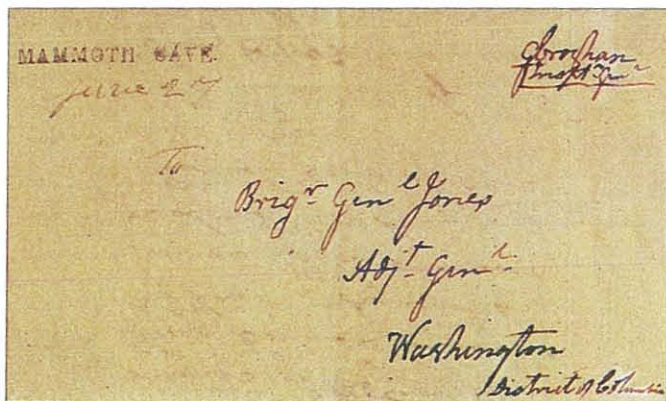 MAMMOTH CAVE.
June 27
GCroghan
Inspr Genl
To
Brigr Genl Jones
Adjt Genl
Washington
District of Columbia